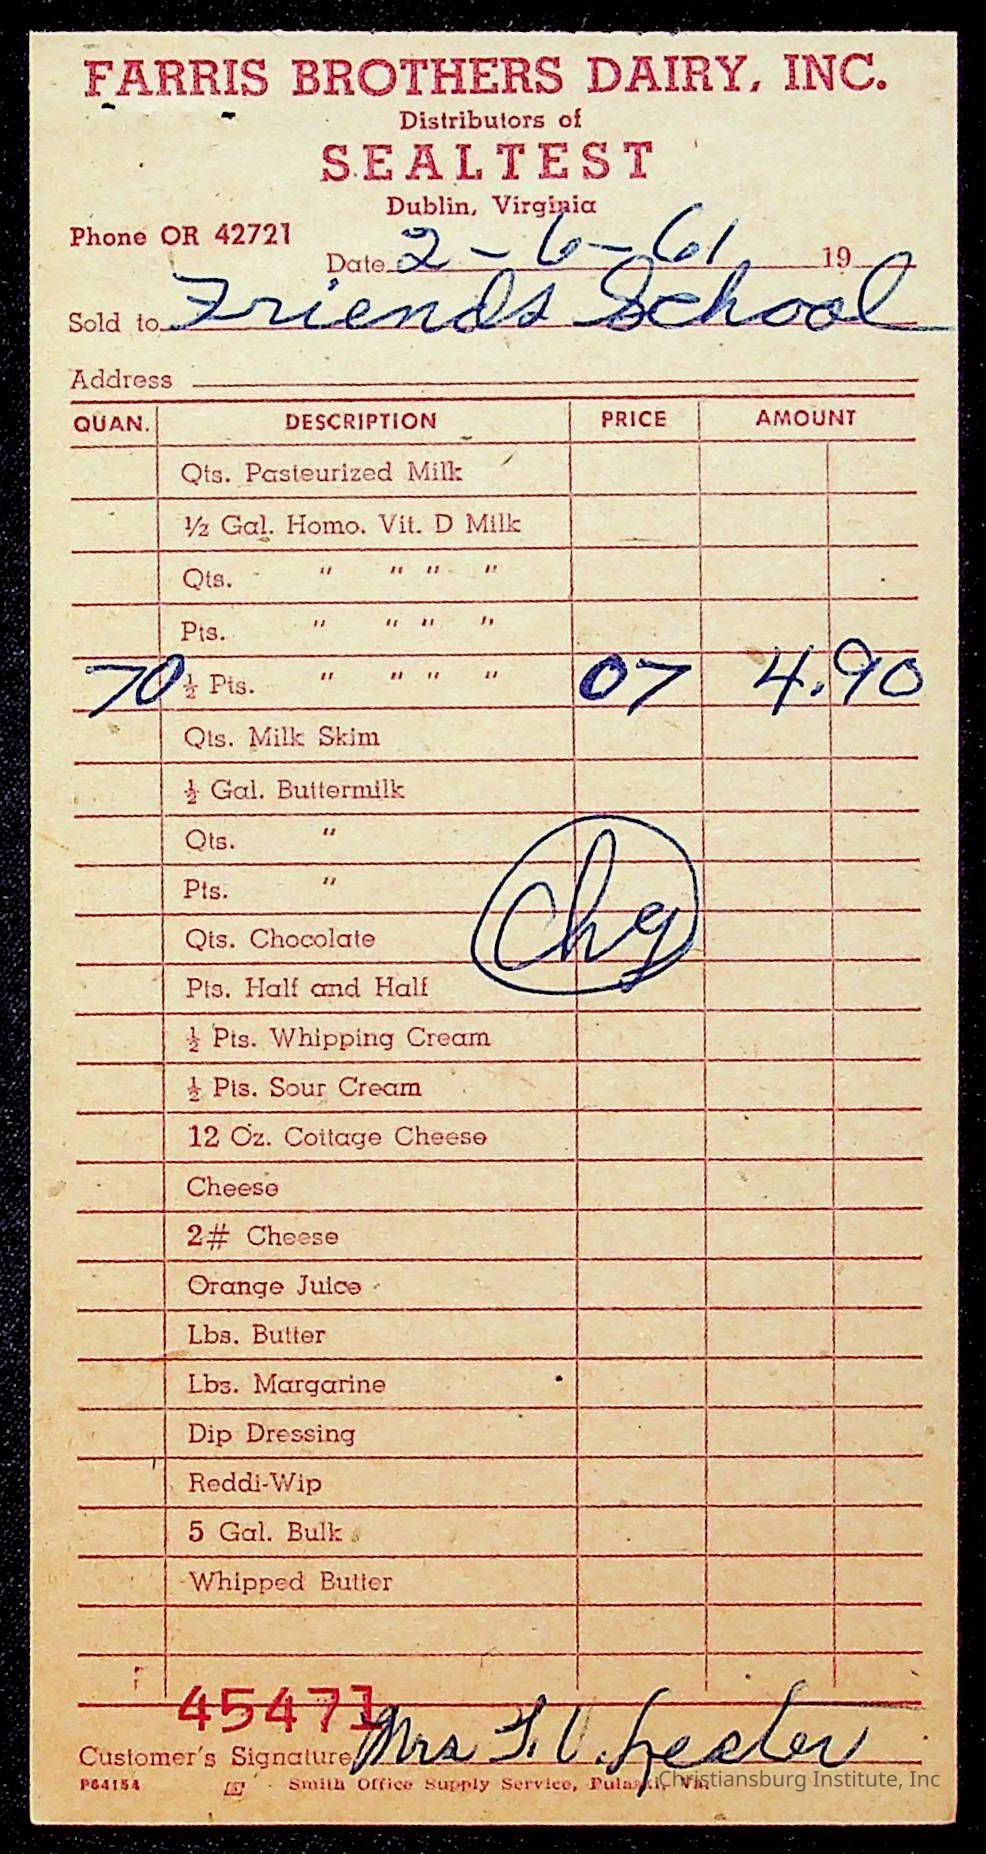 FARRIS BROTHERS DAIRY, INC.
Distributors of
SEALTEST
Dublin, Virginia
Phone OR 42721
Date 2-6-61 19
Sold to Friends School
Address
QUAN. DESCRIPTION PRICE AMOUNT
Qts. Pasteurized Milk
½ Gal. Homo. Vit. D Milk
Qts. " " " "
Pts. " " " "
70 ½ Pts. " " " " 07 4.90
Qts. Milk Skim
½ Gal. Buttermilk
Qts. "
Pts. "
Chg
Qts. Chocolate
Pts. Half and Half
½ Pts. Whipping Cream
½ Pts. Sour Cream
12 Oz. Cottage Cheese
Cheese
2# Cheese
Orange Juice
Lbs. Butter
Lbs. Margarine
Dip Dressing
Reddi-Wip
5 Gal. Bulk
Whipped Butter
45471
Customer's Signature Mrs. F. V. Lester
P64154 Smith Office Supply Service, Pulaski, Va.
Christiansburg Institute, Inc